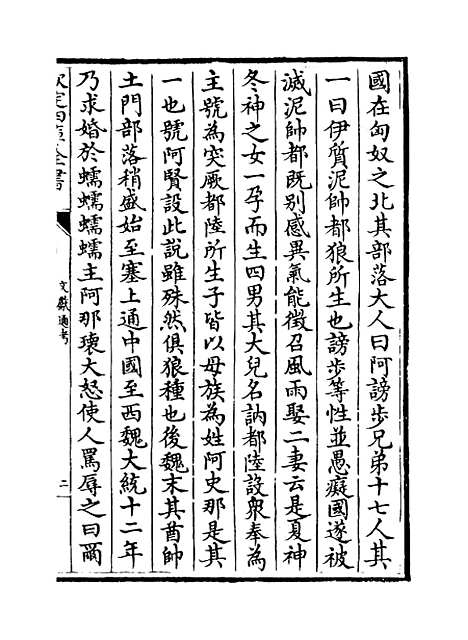 國在匈奴之北其部落大人曰阿謗步兄弟十七人其
一曰伊質泥帥都狼所生也謗步等性並愚癡國遂被
滅泥帥都既别感異氣能徵召風雨娶二妻云是夏神
冬神之女一孕而生四男其大兒名訥都陸設衆奉為
主號為突厥都陸所生子皆以母族為姓阿史那是其
一也號阿賢設此說雖殊然俱狼種也後魏末其酋帥
土門部落稍盛始至塞上通中國至西魏大統十二年
乃求婚於蠕蠕蠕蠕主阿那瓌大怒使人罵辱之曰爾
欽定四庫全書
文獻通考
二